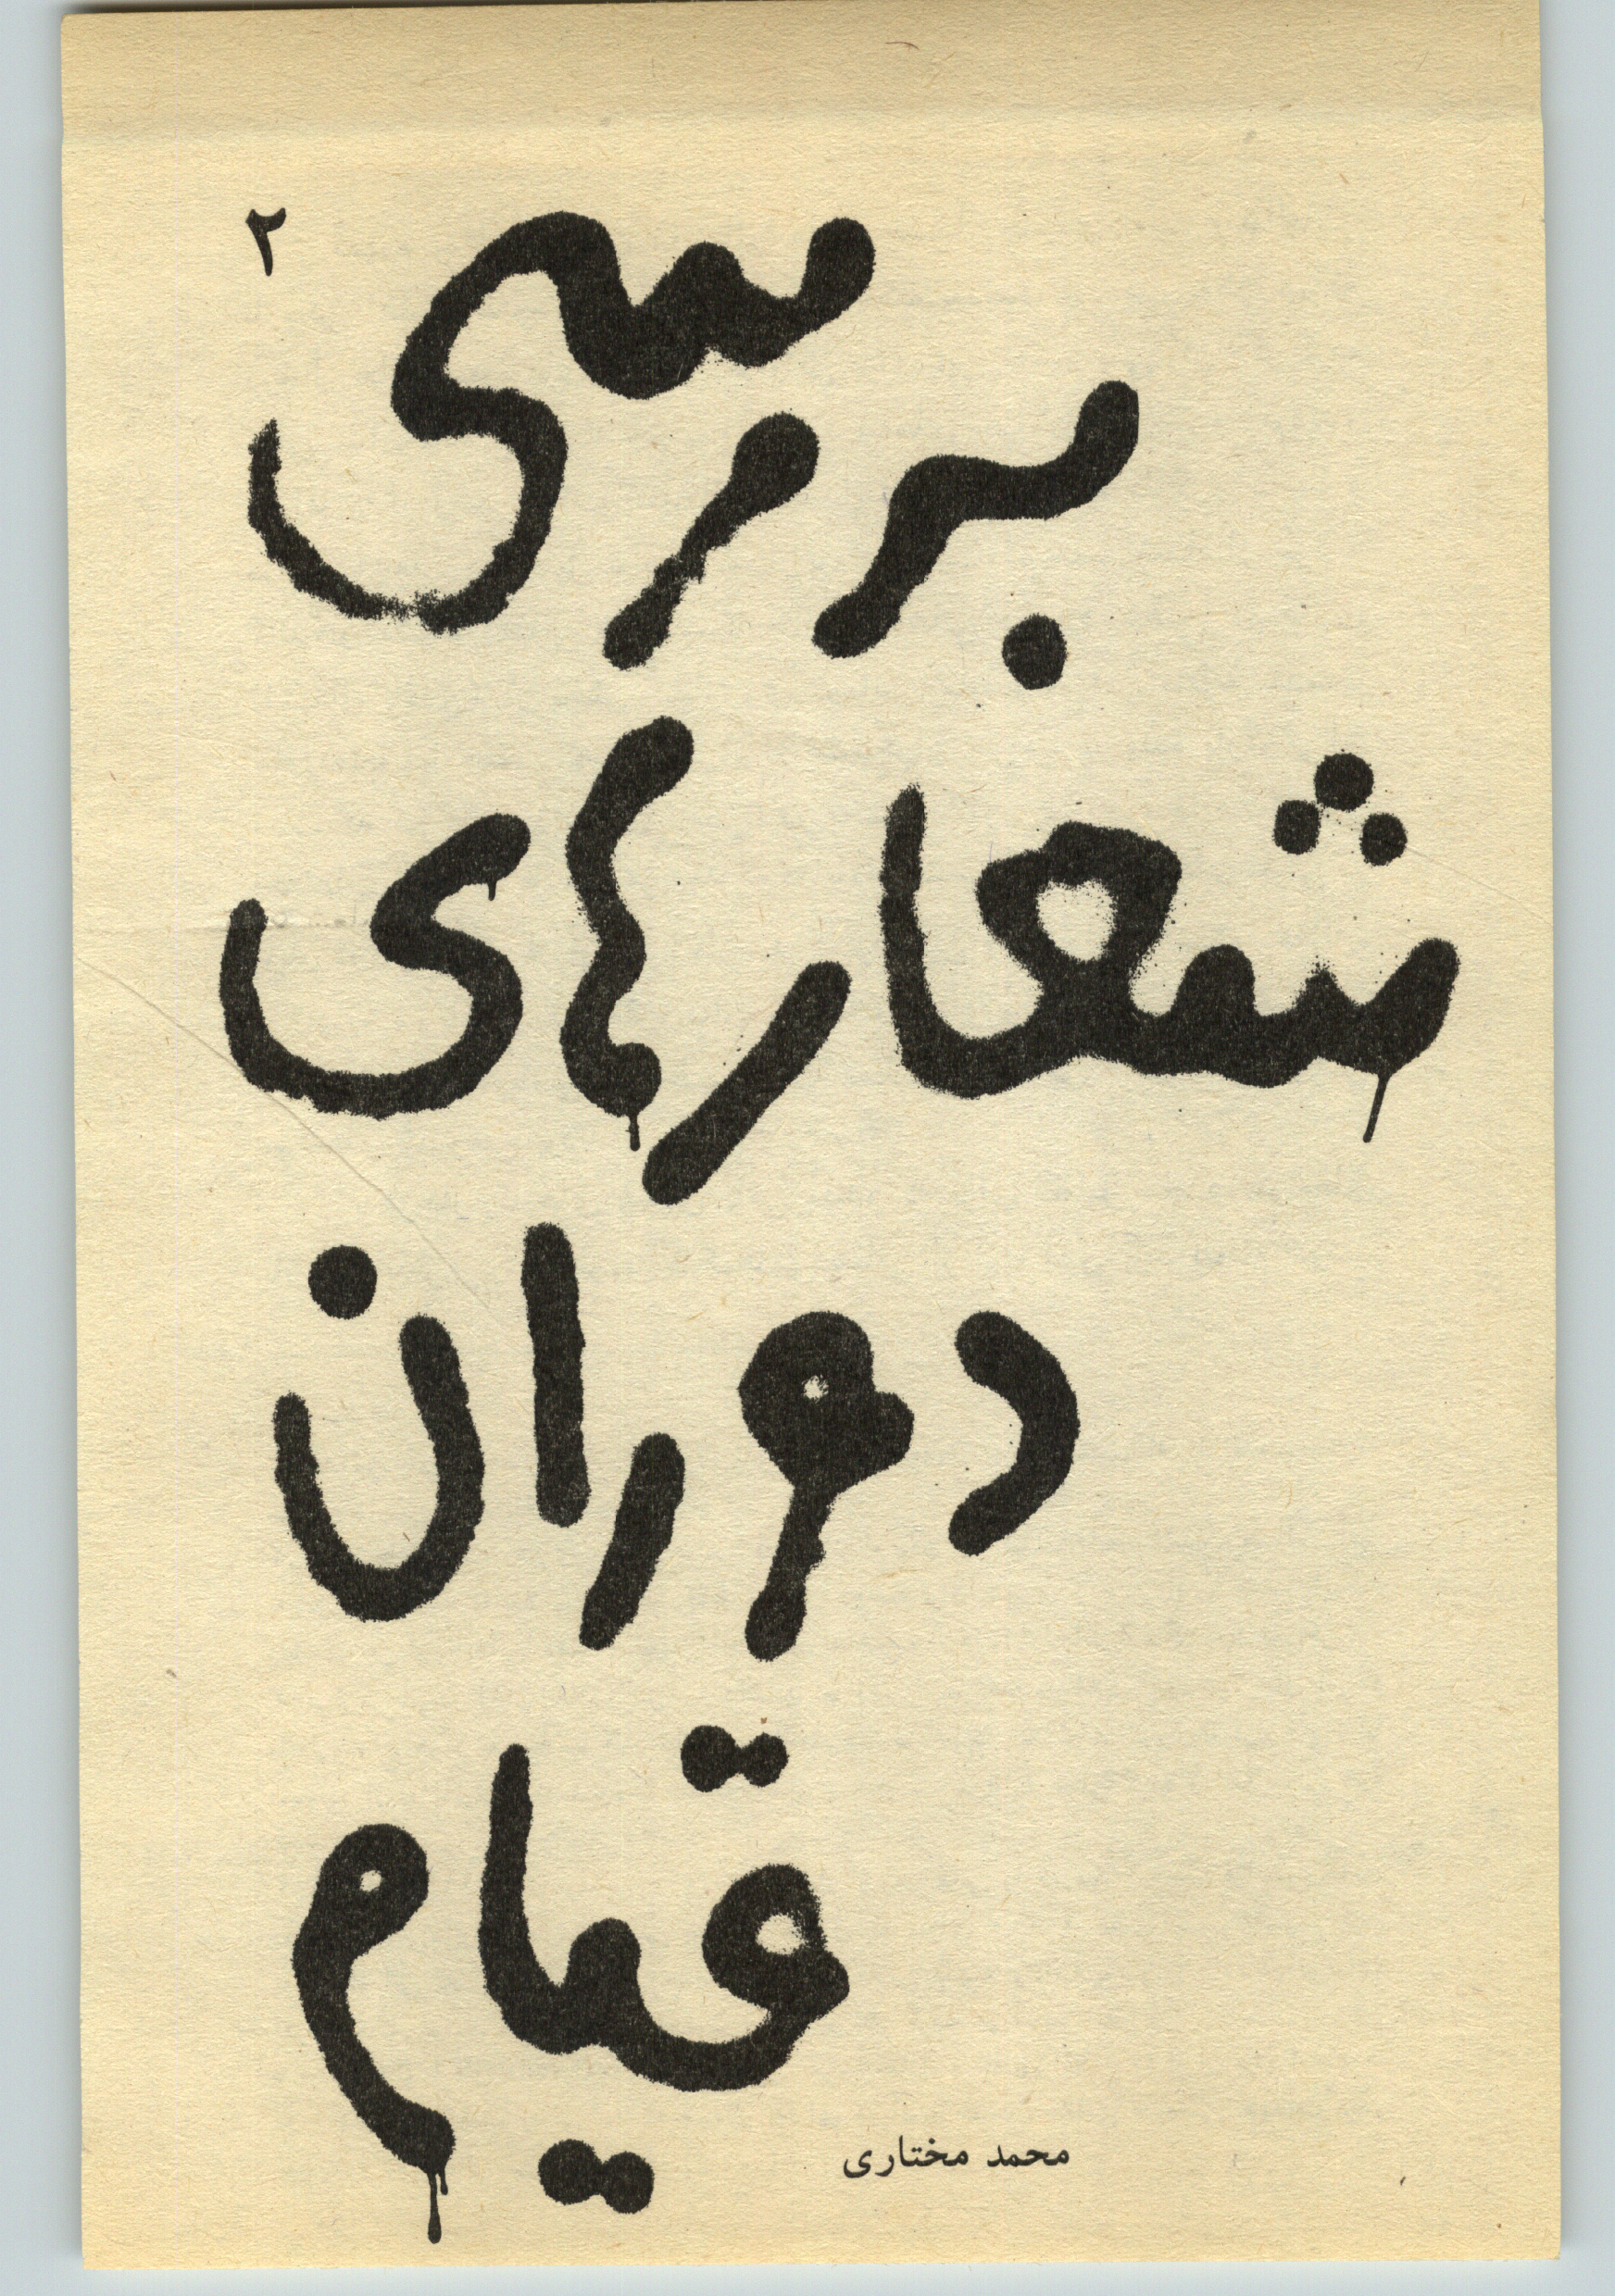 بررسی ۲
شعارهای
دوران
قیام
محمد مختاری